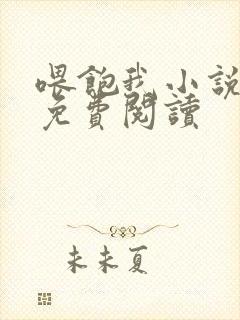 喂飽我小說
免費閱讀
未未夏